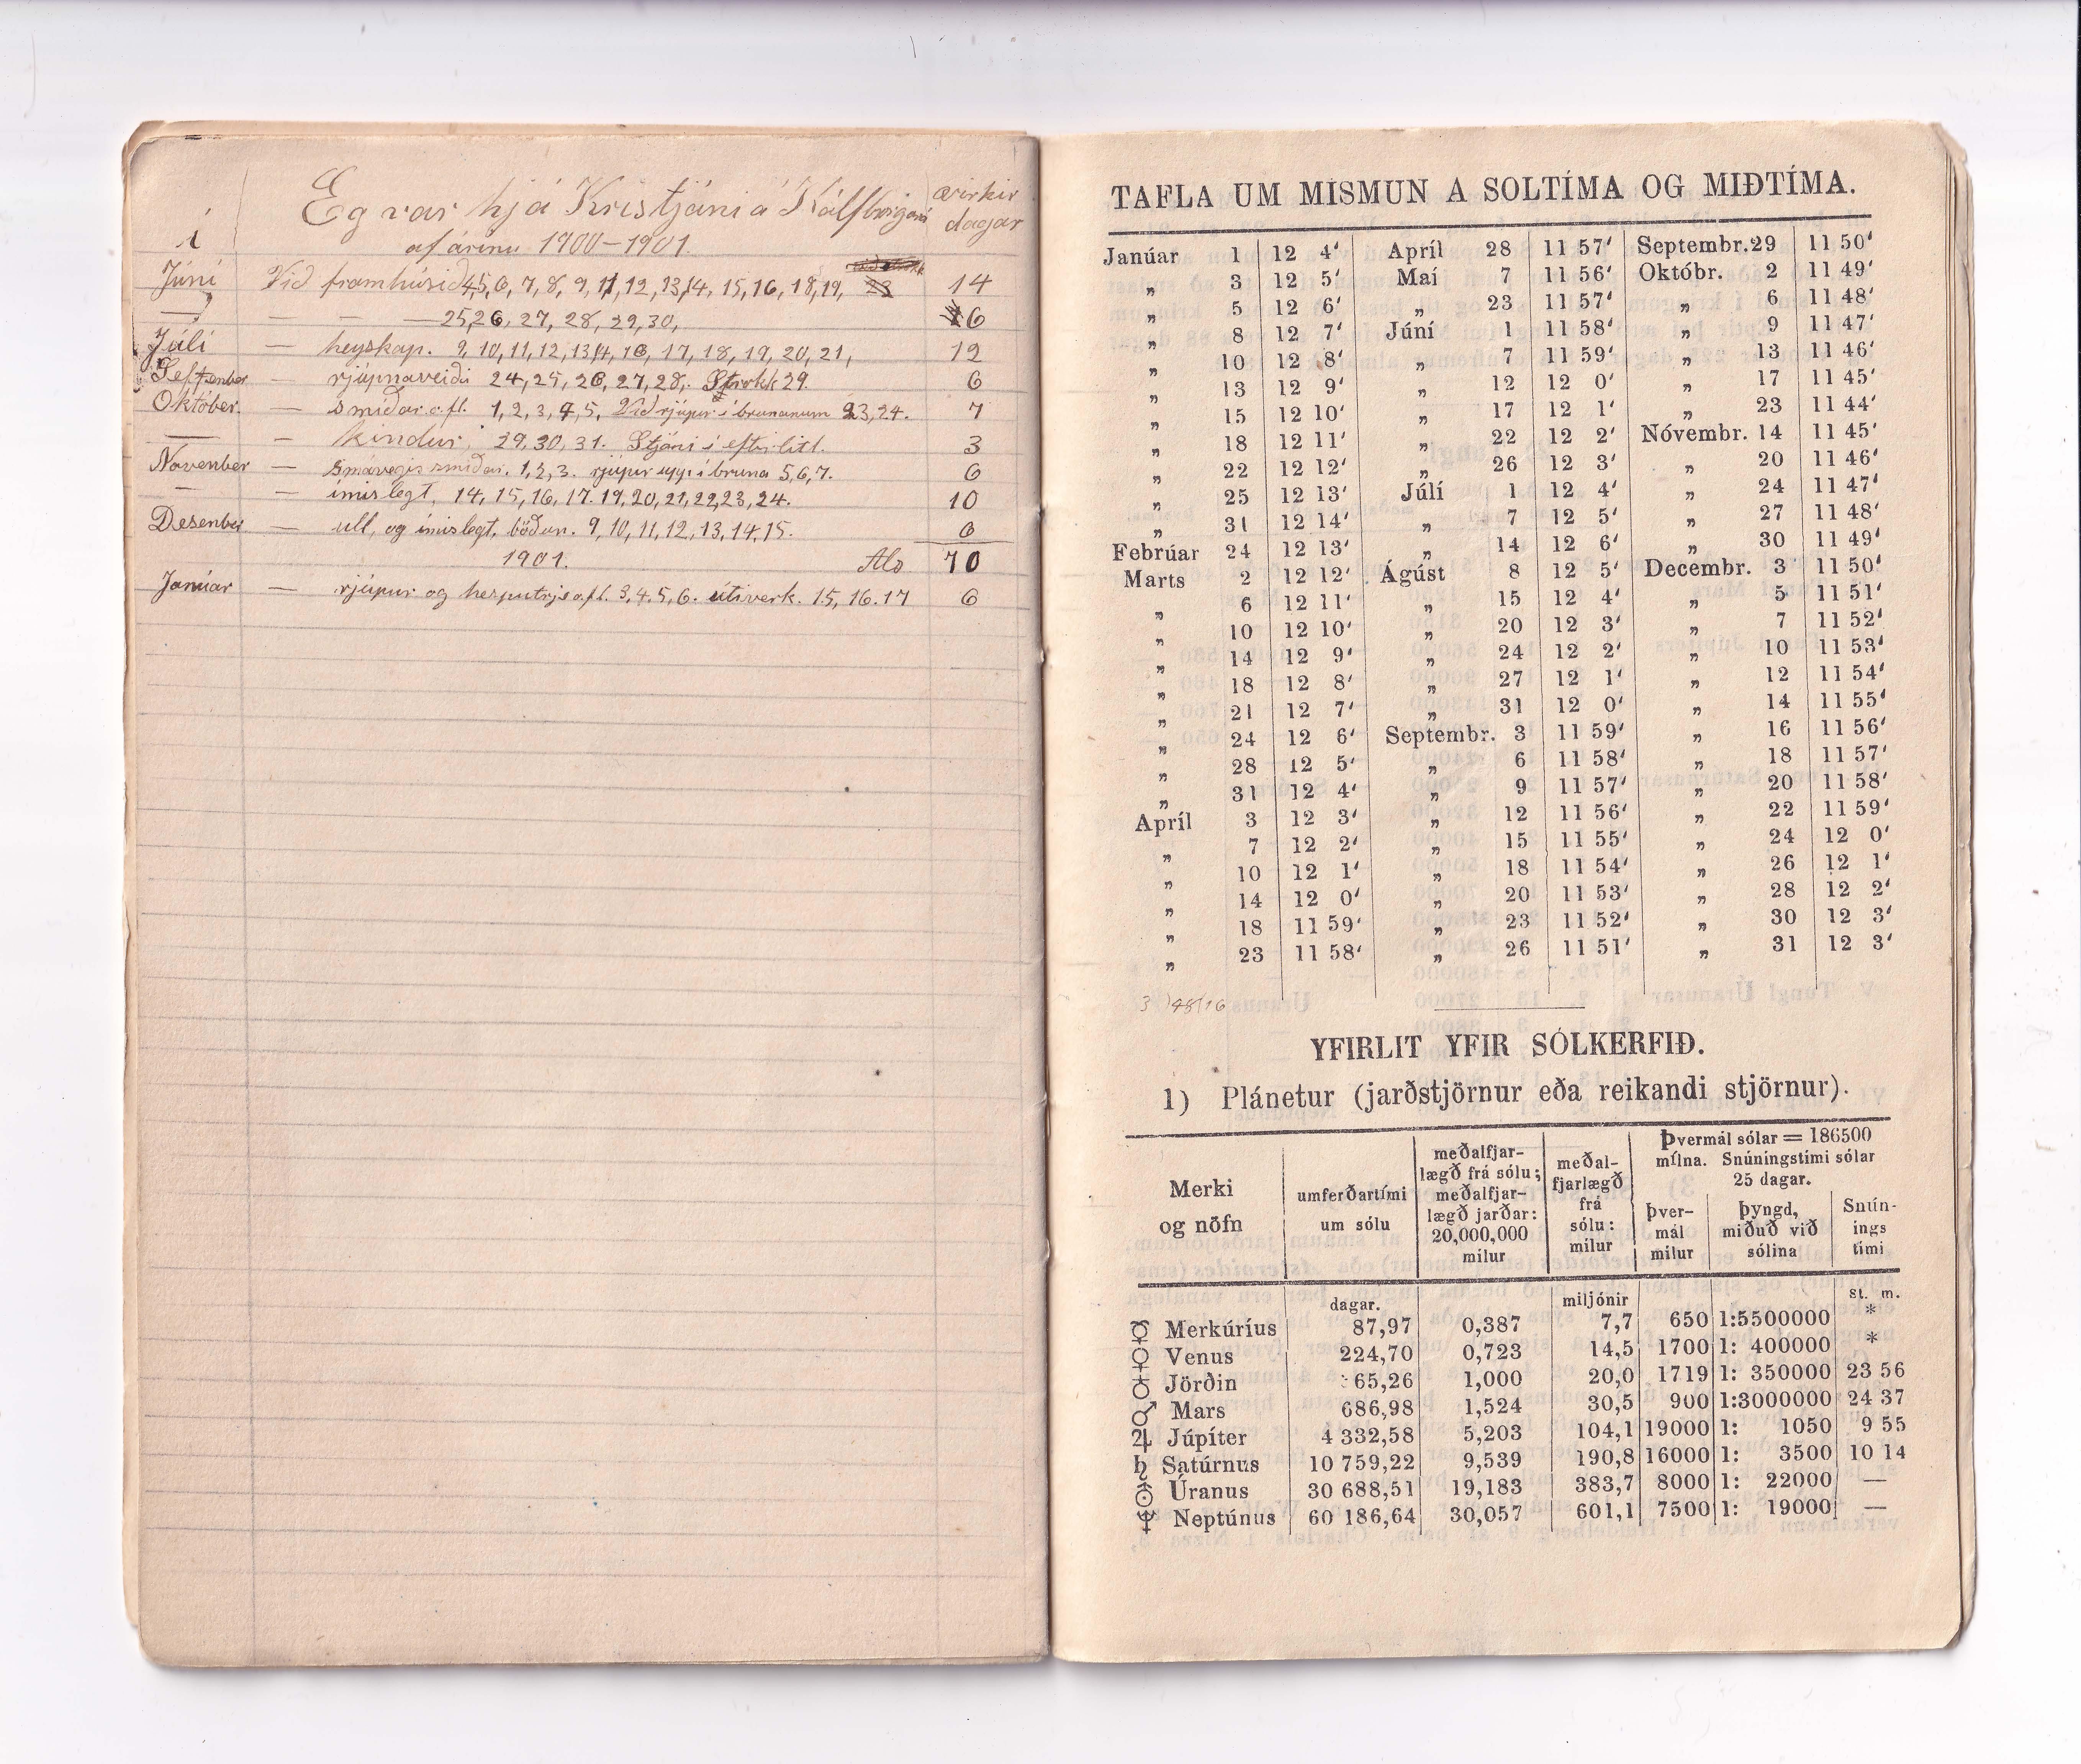 Eg var hjá Kristjáni á Kálfborgará virkir
í af árinu 1900–1901. dagar
Júní Við framhúsið 4,5,6, 7, 8, 9, 11, 12, 13, 14, 15, 16, 18, 19, 14
— — — — 25, 26, 27, 28, 29, 30, 6
Júlí — heyskap. 9, 10, 11, 12, 13, 14, 16, 17, 18, 19, 20, 21, 12
September — rjúpnaveiði 24, 25, 26, 27, 28, Strokk 29. 6
Október. — smíðar o.fl. 1, 2, 3, 4, 5, Við rjúpur í brunanum 23, 24. 7
— — kindur, 29. 30, 31. Stjáni í eftirlitl. 3
November — smávegis smíðar, 1, 2, 3. rjúpur upp í bruna 5, 6, 7. 6
— — ímislegt, 14, 15, 16, 17. 19, 20, 21, 22, 23, 24. 10
Desenber — ull, og ímislegt, böðun. 9, 10, 11, 12, 13, 14, 15. 6
1901. Als 70
Janúar — rjúpur og hesputrje o.fl. 3, 4. 5, 6. útiverk. 15, 16. 17 6
TAFLA UM MISMUN A SOLTÍMA OG MIÐTÍMA.
Janúar 1 12 4′ Apríl 28 11 57′ Septembr. 29 11 50′
„ 3 12 5′ Maí 7 11 56′ Októbr. 2 11 49′
„ 5 12 6′ „ 23 11 57′ „ 6 11 48′
„ 8 12 7′ Júní 1 11 58′ „ 9 11 47′
„ 10 12 8′ „ 7 11 59′ „ 13 11 46′
„ 13 12 9′ „ 12 12 0′ „ 17 11 45′
„ 15 12 10′ „ 17 12 1′ „ 23 11 44′
„ 18 12 11′ „ 22 12 2′ Nóvembr. 14 11 45′
„ 22 12 12′ „ 26 12 3′ „ 20 11 46′
„ 25 12 13′ Júlí 1 12 4′ „ 24 11 47′
„ 31 12 14′ „ 7 12 5′ „ 27 11 48′
Febrúar 24 12 13′ „ 14 12 6′ „ 30 11 49′
Marts 2 12 12′ Ágúst 8 12 5′ Decembr. 3 11 50′
„ 6 12 11′ „ 15 12 4′ „ 5 11 51′
„ 10 12 10′ „ 20 12 3′ „ 7 11 52′
„ 14 12 9′ „ 24 12 2′ „ 10 11 53′
„ 18 12 8′ „ 27 12 1′ „ 12 11 54′
„ 21 12 7′ „ 31 12 0′ „ 14 11 55′
„ 24 12 6′ Septembr. 3 11 59′ „ 16 11 56′
„ 28 12 5′ „ 6 11 58′ „ 18 11 57′
„ 31 12 4′ „ 9 11 57′ „ 20 11 58′
Apríl 3 12 3′ „ 12 11 56′ „ 22 11 59′
„ 7 12 2′ „ 15 11 55′ „ 24 12 0′
„ 10 12 1′ „ 18 11 54′ „ 26 12 1′
„ 14 12 0′ „ 20 11 53′ „ 28 12 2′
„ 18 11 59′ „ 23 11 52′ „ 30 12 3′
„ 23 11 58′ „ 26 11 51′ „ 31 12 3′
3 )48/16
YFIRLIT YFIR SÓLKERFIÐ.
1) Plánetur (jarðstjörnur eða reikandi stjörnur).
Merki
og nöfn
umferðartími
um sólu
meðalfjar-
lægð frá sólu;
meðalfjar-
lægð jarðar:
20,000,000
mílur
meðal-
fjarlægð
frá
sólu:
mílur
Þvermál sólar = 186500
mílna. Snúningstími sólar
25 dagar.
þver-
mál
mílur
þyngd,
miðuð við
sólina
Snún-
ings
tími
dagar. miljónir st. m.
☿ Merkúríus 87,97 0,387 7,7 650 1:5500000 *
♀ Venus 224,70 0,723 14,5 1700 1: 400000 *
♁ Jörðin 65,26 1,000 20,0 1719 1: 350000 23 56
♂ Mars 686,98 1,524 30,5 900 1:3000000 24 37
♃ Júpíter 4 332,58 5,203 104,1 19000 1: 1050 9 55
♄ Satúrnus 10 759,22 9,539 190,8 16000 1: 3500 10 14
⛢ Úranus 30 688,51 19,183 383,7 8000 1: 22000 —
♆ Neptúnus 60 186,64 30,057 601,1 7500 1: 19000 —